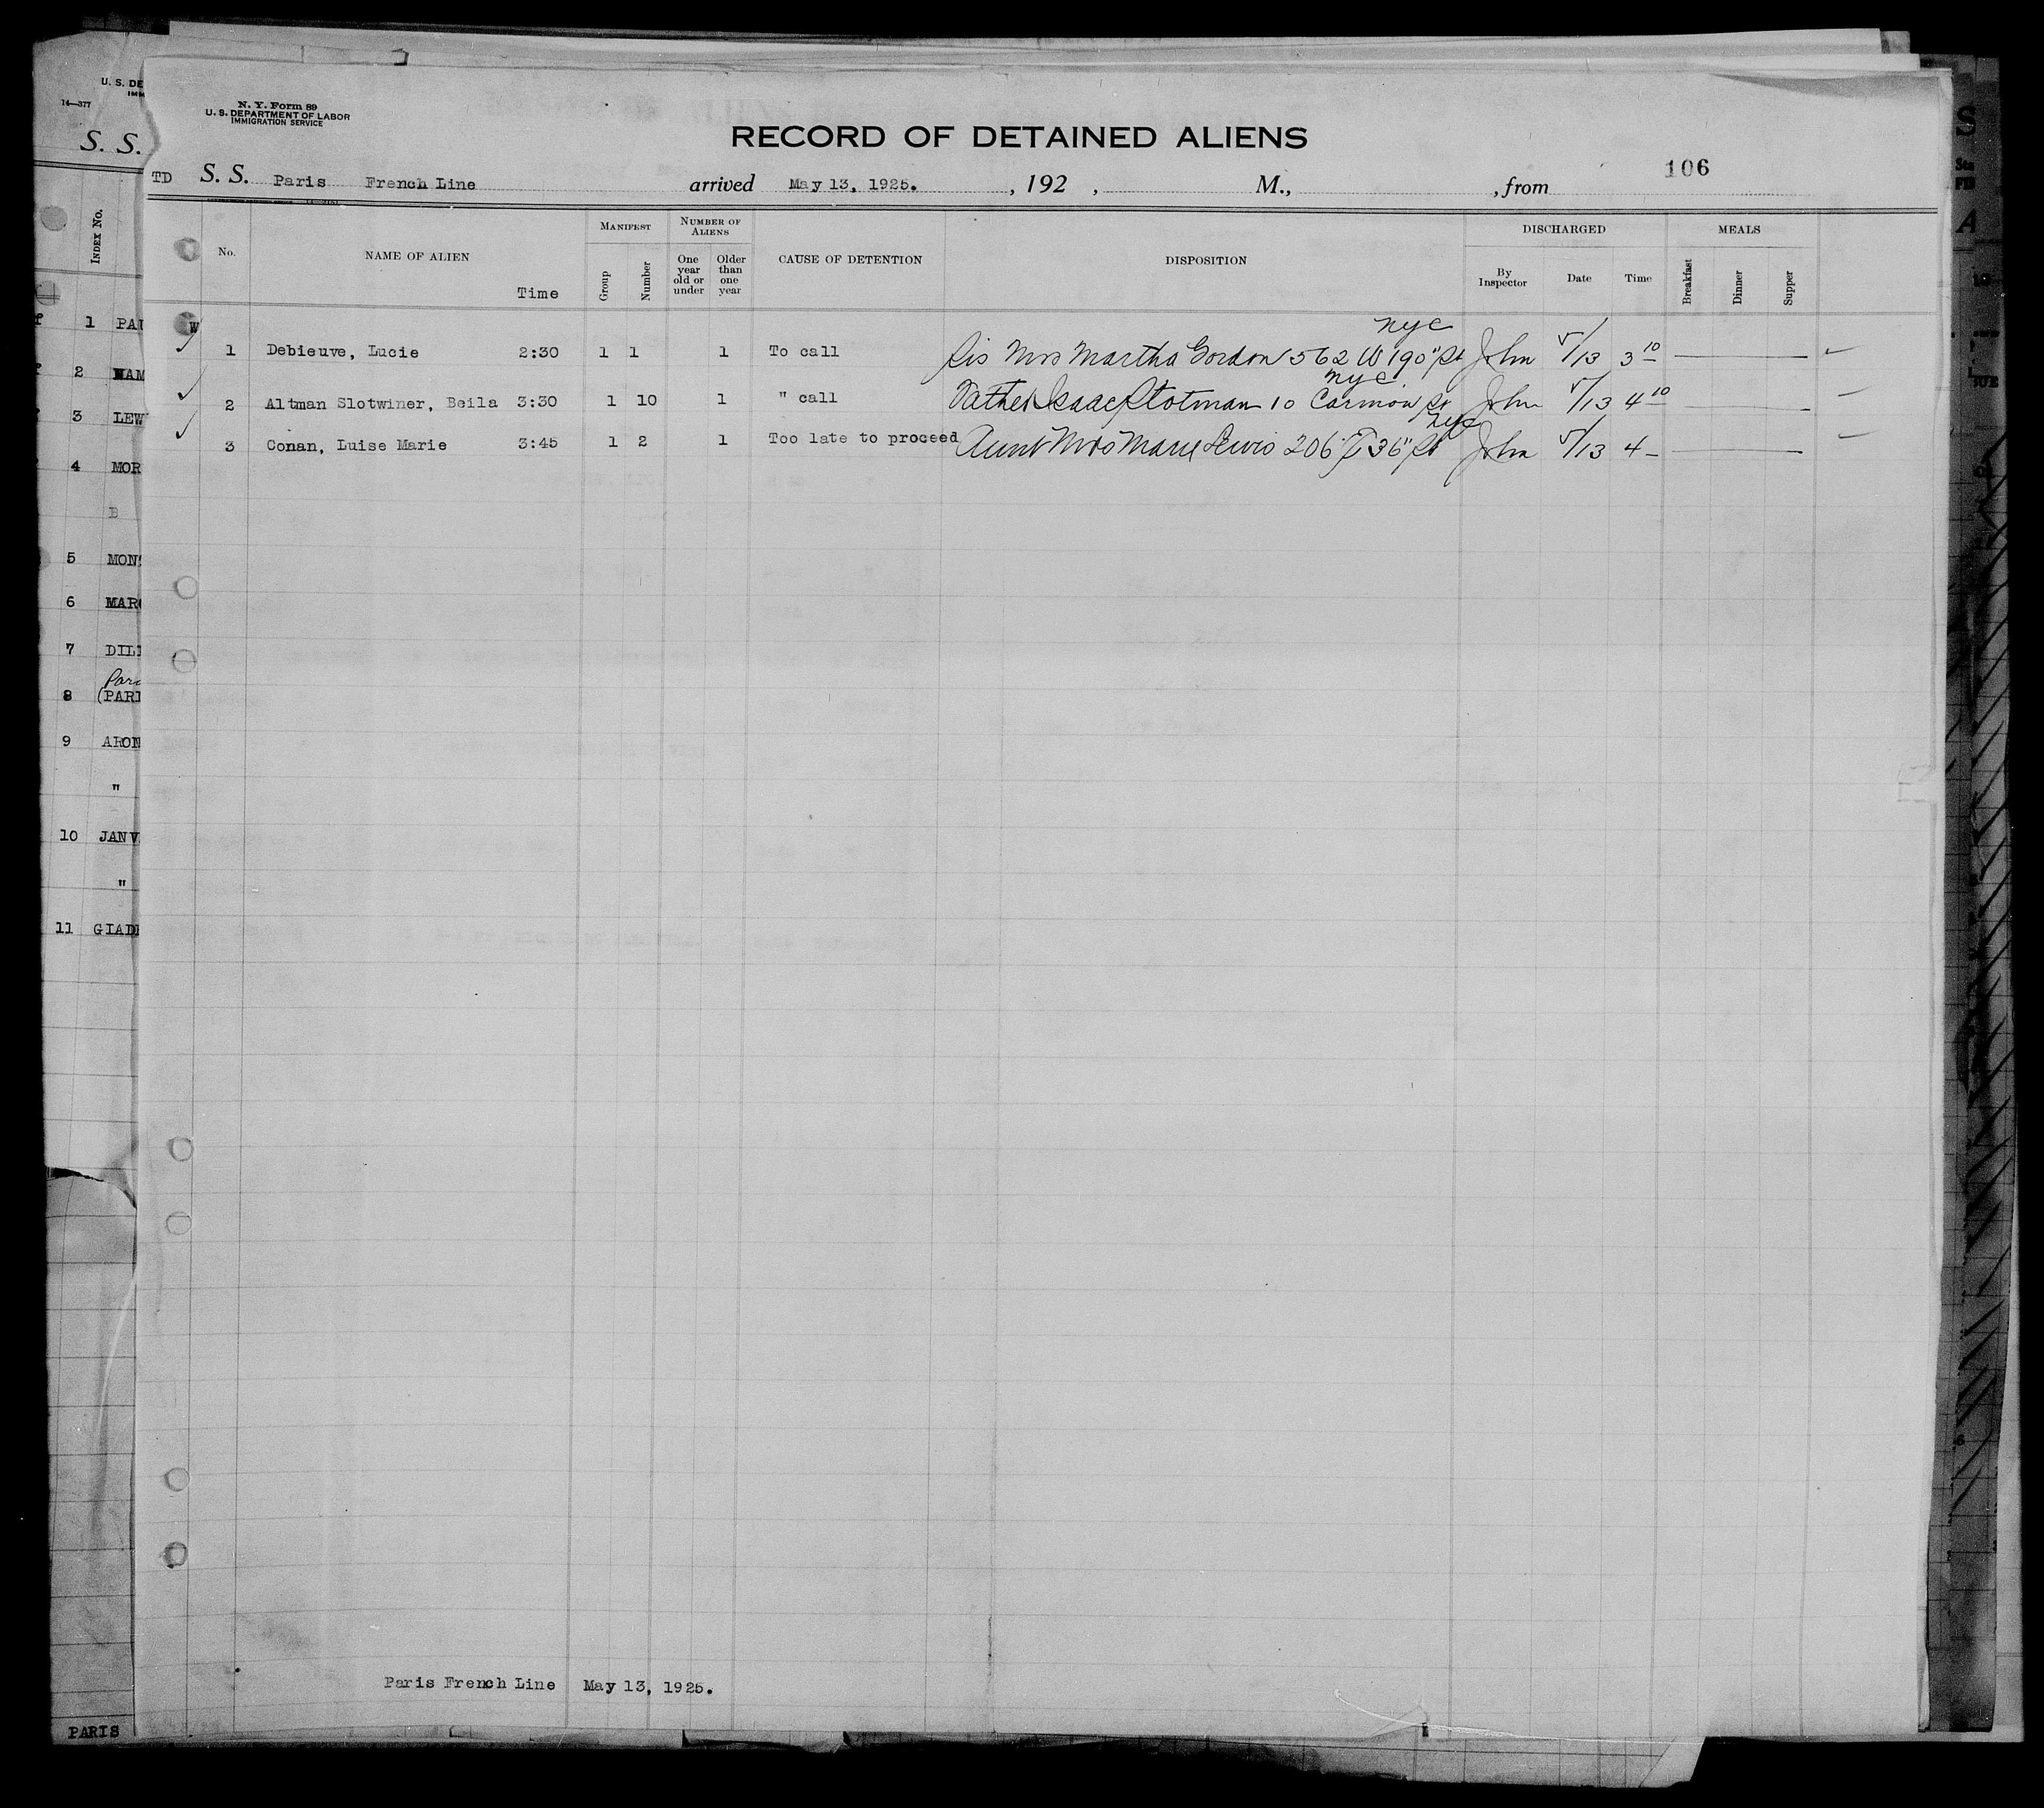 U. S. DE
IMM
14—377
S. S.
INDEX No.
1 PAU
2 NAM
3 LEW
4 MOR
B
5 MON
6 MARG
7 DILI
Pari
8 (PARI
9 ARON
"
10 JANV
"
11 GIADE
PARIS
N. Y. Form 89
U. S. DEPARTMENT OF LABOR
IMMIGRATION SERVICE
RECORD OF DETAINED ALIENS
106
TD S. S. Paris French Line arrived May 13, 1925. , 192 , M., , from
No. NAME OF ALIEN Time MANIFEST Group Number NUMBER OF ALIENS One year old or under Older than one year CAUSE OF DETENTION DISPOSITION DISCHARGED By Inspector Date Time MEALS Breakfast Dinner Supper
W
nyc
1 Debieuve, Lucie 2:30 1 1 1 To call Sis Mrs Martha Gordon 562 W 190" St John 5/13 3 10
nyc
2 Altman Slotwiner, Beila 3:30 1 10 1 " call Father Isaac Slotman 10 St John 5/13 4 10
nyc
3 Conan, Luise Marie 3:45 1 2 1 Too late to proceed Aunt Mrs Marie Lewis 206 E 36" St John 5/13 4 –
Paris French Line May 13, 1925.